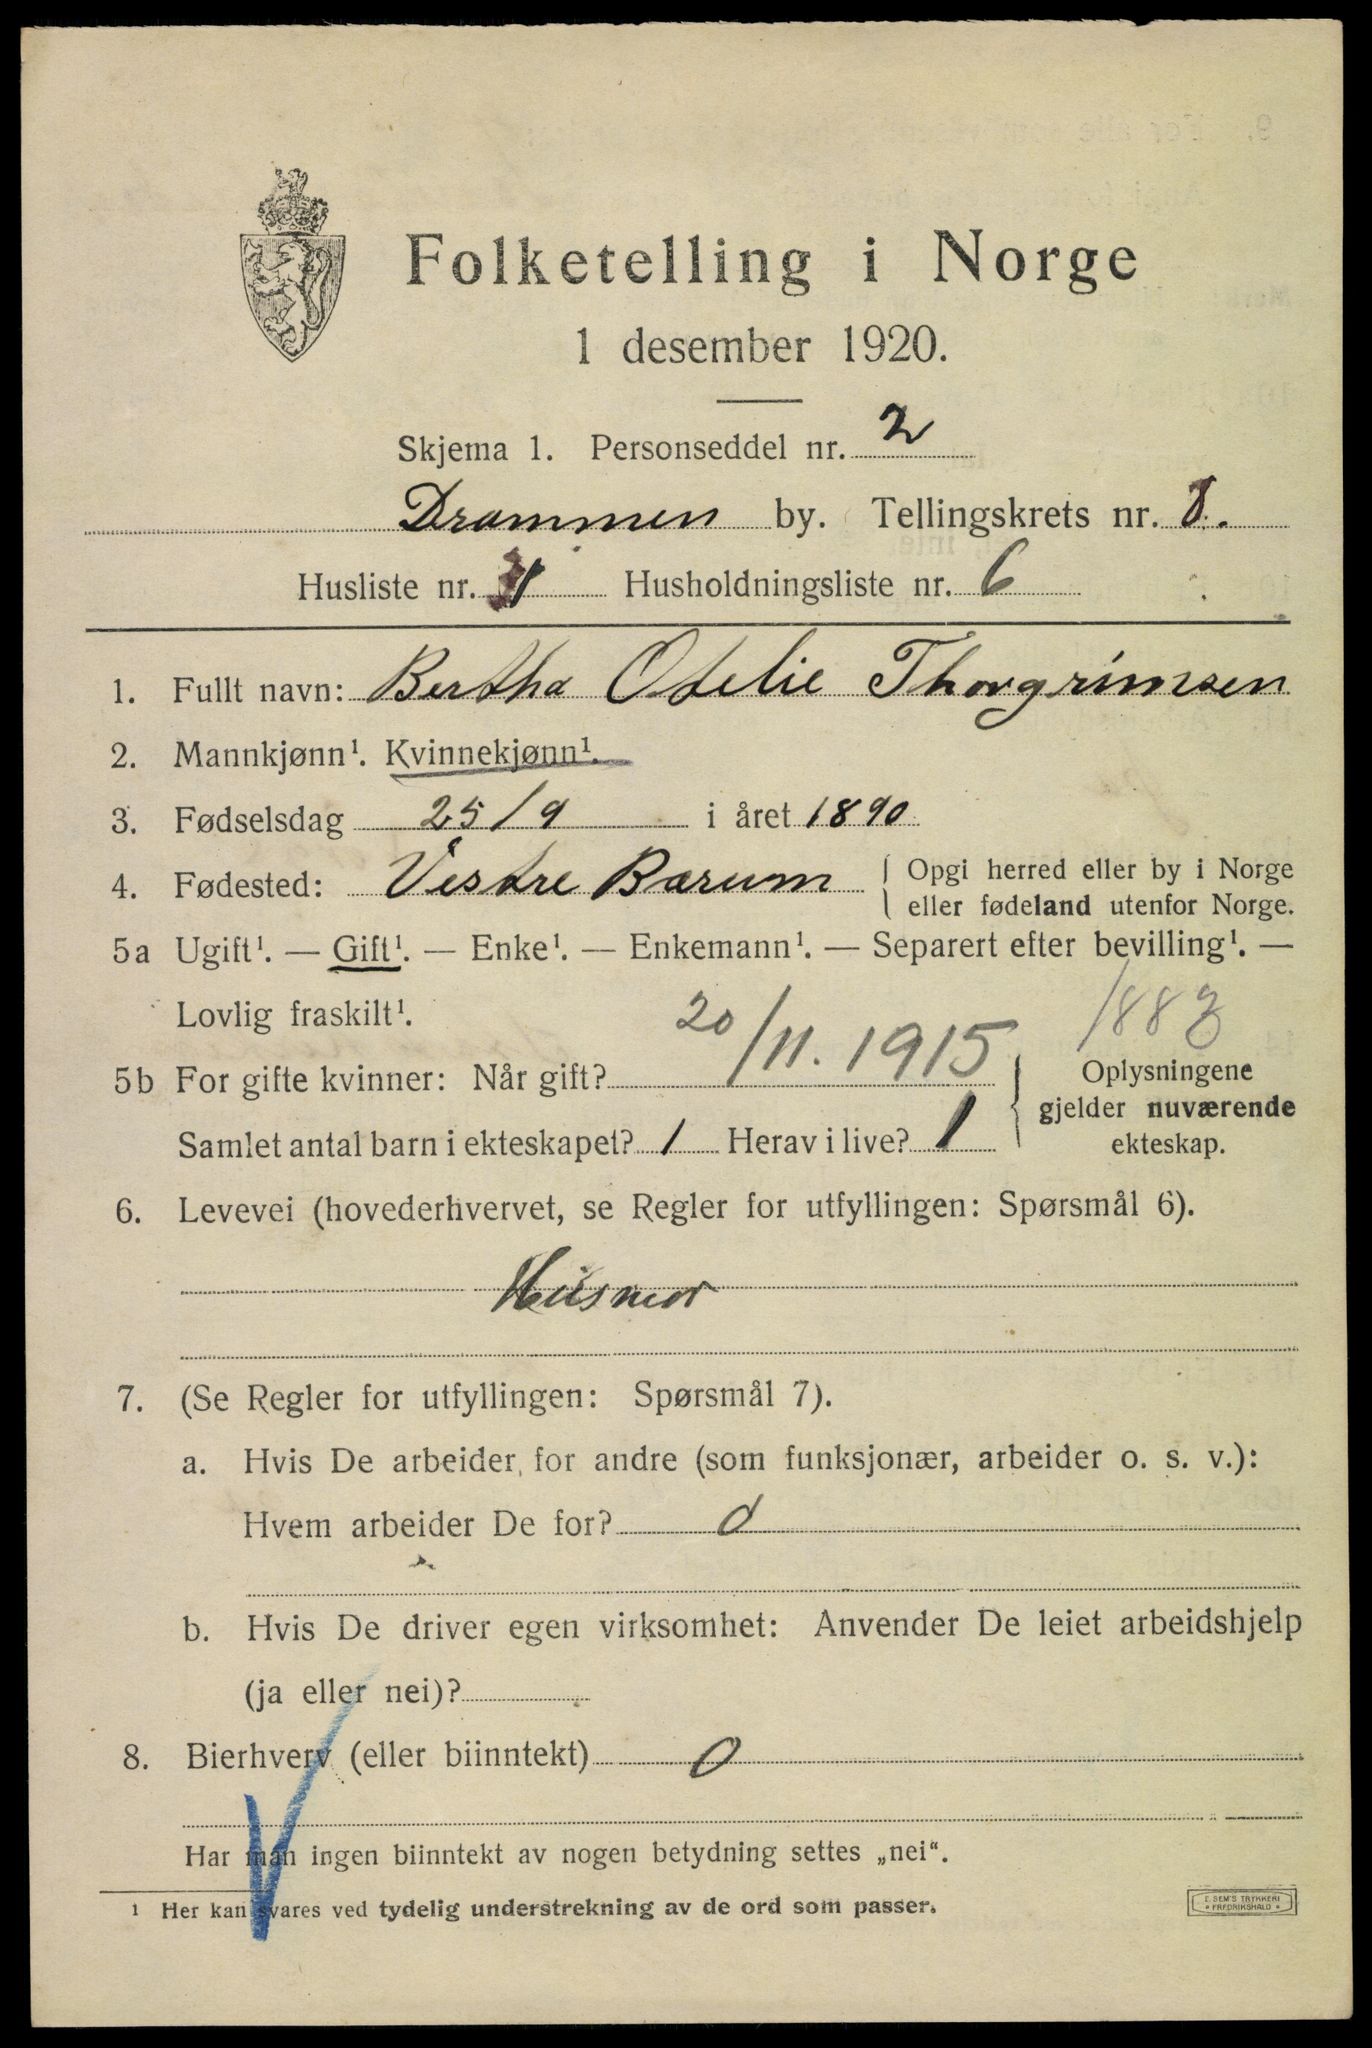 Folketelling i Norge
1 desember 1920.
Skjema 1. Personseddel nr. 2
Drammen by. Tellingskrets nr. 8.
Husliste nr. Husholdningsliste nr. 6
1. Fullt navn: Bertha Otelie Thorgrimsen
2. Mannkjønn¹. Kvinnekjønn¹.
3. Fødselsdag 25/9 i året 1890
4. Fødested: Vestre Bærum { Opgi herred eller by i Norge
eller fødeland utenfor Norge.
5a Ugift¹. — Gift¹. — Enke¹. — Enkemann¹. — Separert efter bevilling¹. —
Lovlig fraskilt¹.
1883
5b For gifte kvinner: Når gift? 20/11. 1915
Samlet antal barn i ekteskapet? 1 Herav i live? 1
Oplysningene
gjelder nuværende
ekteskap.
6. Levevei (hovederhvervet, se Regler for utfyllingen: Spørsmål 6).
Husmor
7. (Se Regler for utfyllingen: Spørsmål 7).
a. Hvis De arbeider for andre (som funksjonær, arbeider o. s. v.):
Hvem arbeider De for? 0
b. Hvis De driver egen virksomhet: Anvender De leiet arbeidshjelp
(ja eller nei)?
8. Bierhverv (eller biinntekt) 0
Har man ingen biinntekt av nogen betydning settes „nei“.
¹ Her kan svares ved tydelig understrekning av de ord som passer.
E. SEM'S TRYKKERI
• FREDRIKSHALD •